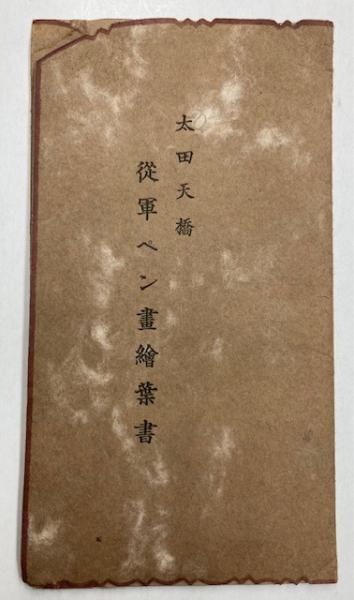 太田天橋
從軍ペン畫繪葉書